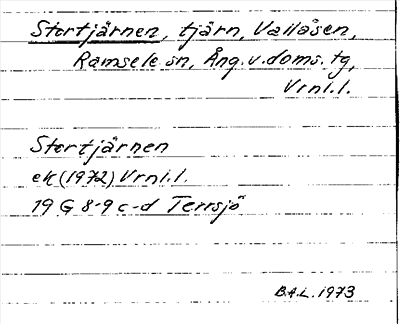 Stortjärnen, tjärn, Vallåsen,
Ramsele sn, Ång.v.doms.tg,
Vrnl.l.
Stortjärnen
ek (1972) Vrnl.l.
19 G 8-9 c-d Terrsjö
B.A.L. 1973